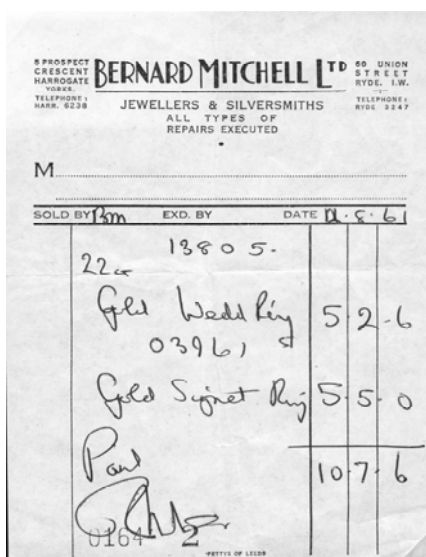 5 PROSPECT CRESCENT HARROGATE YORKS. TELEPHONE: HARR. 6238
BERNARD MITCHELL LTD
60 UNION STREET RYDE. I.W. TELEPHONE: RYDE 3247
JEWELLERS & SILVERSMITHS
ALL TYPES OF
REPAIRS EXECUTED
M
SOLD BY Bm EXD. BY DATE 12.8.61
13805.
22ct
Gold Wedd Ring 5 2 6
03961
Gold Signet Ring 5 5 0
Paid 10 7 6
0164
PETTYS OF LEEDS